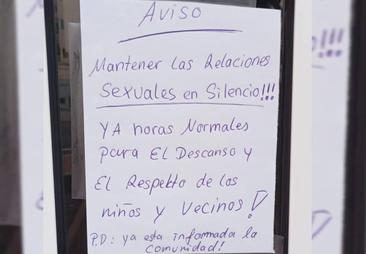 Aviso
Mantener las Relaciones
Sexuales en Silencio!!!
YA horas Normales
para El Descanso y
El Respetto de los
niños y Vecinos!
P.D: ya esta informada la
comunidad!